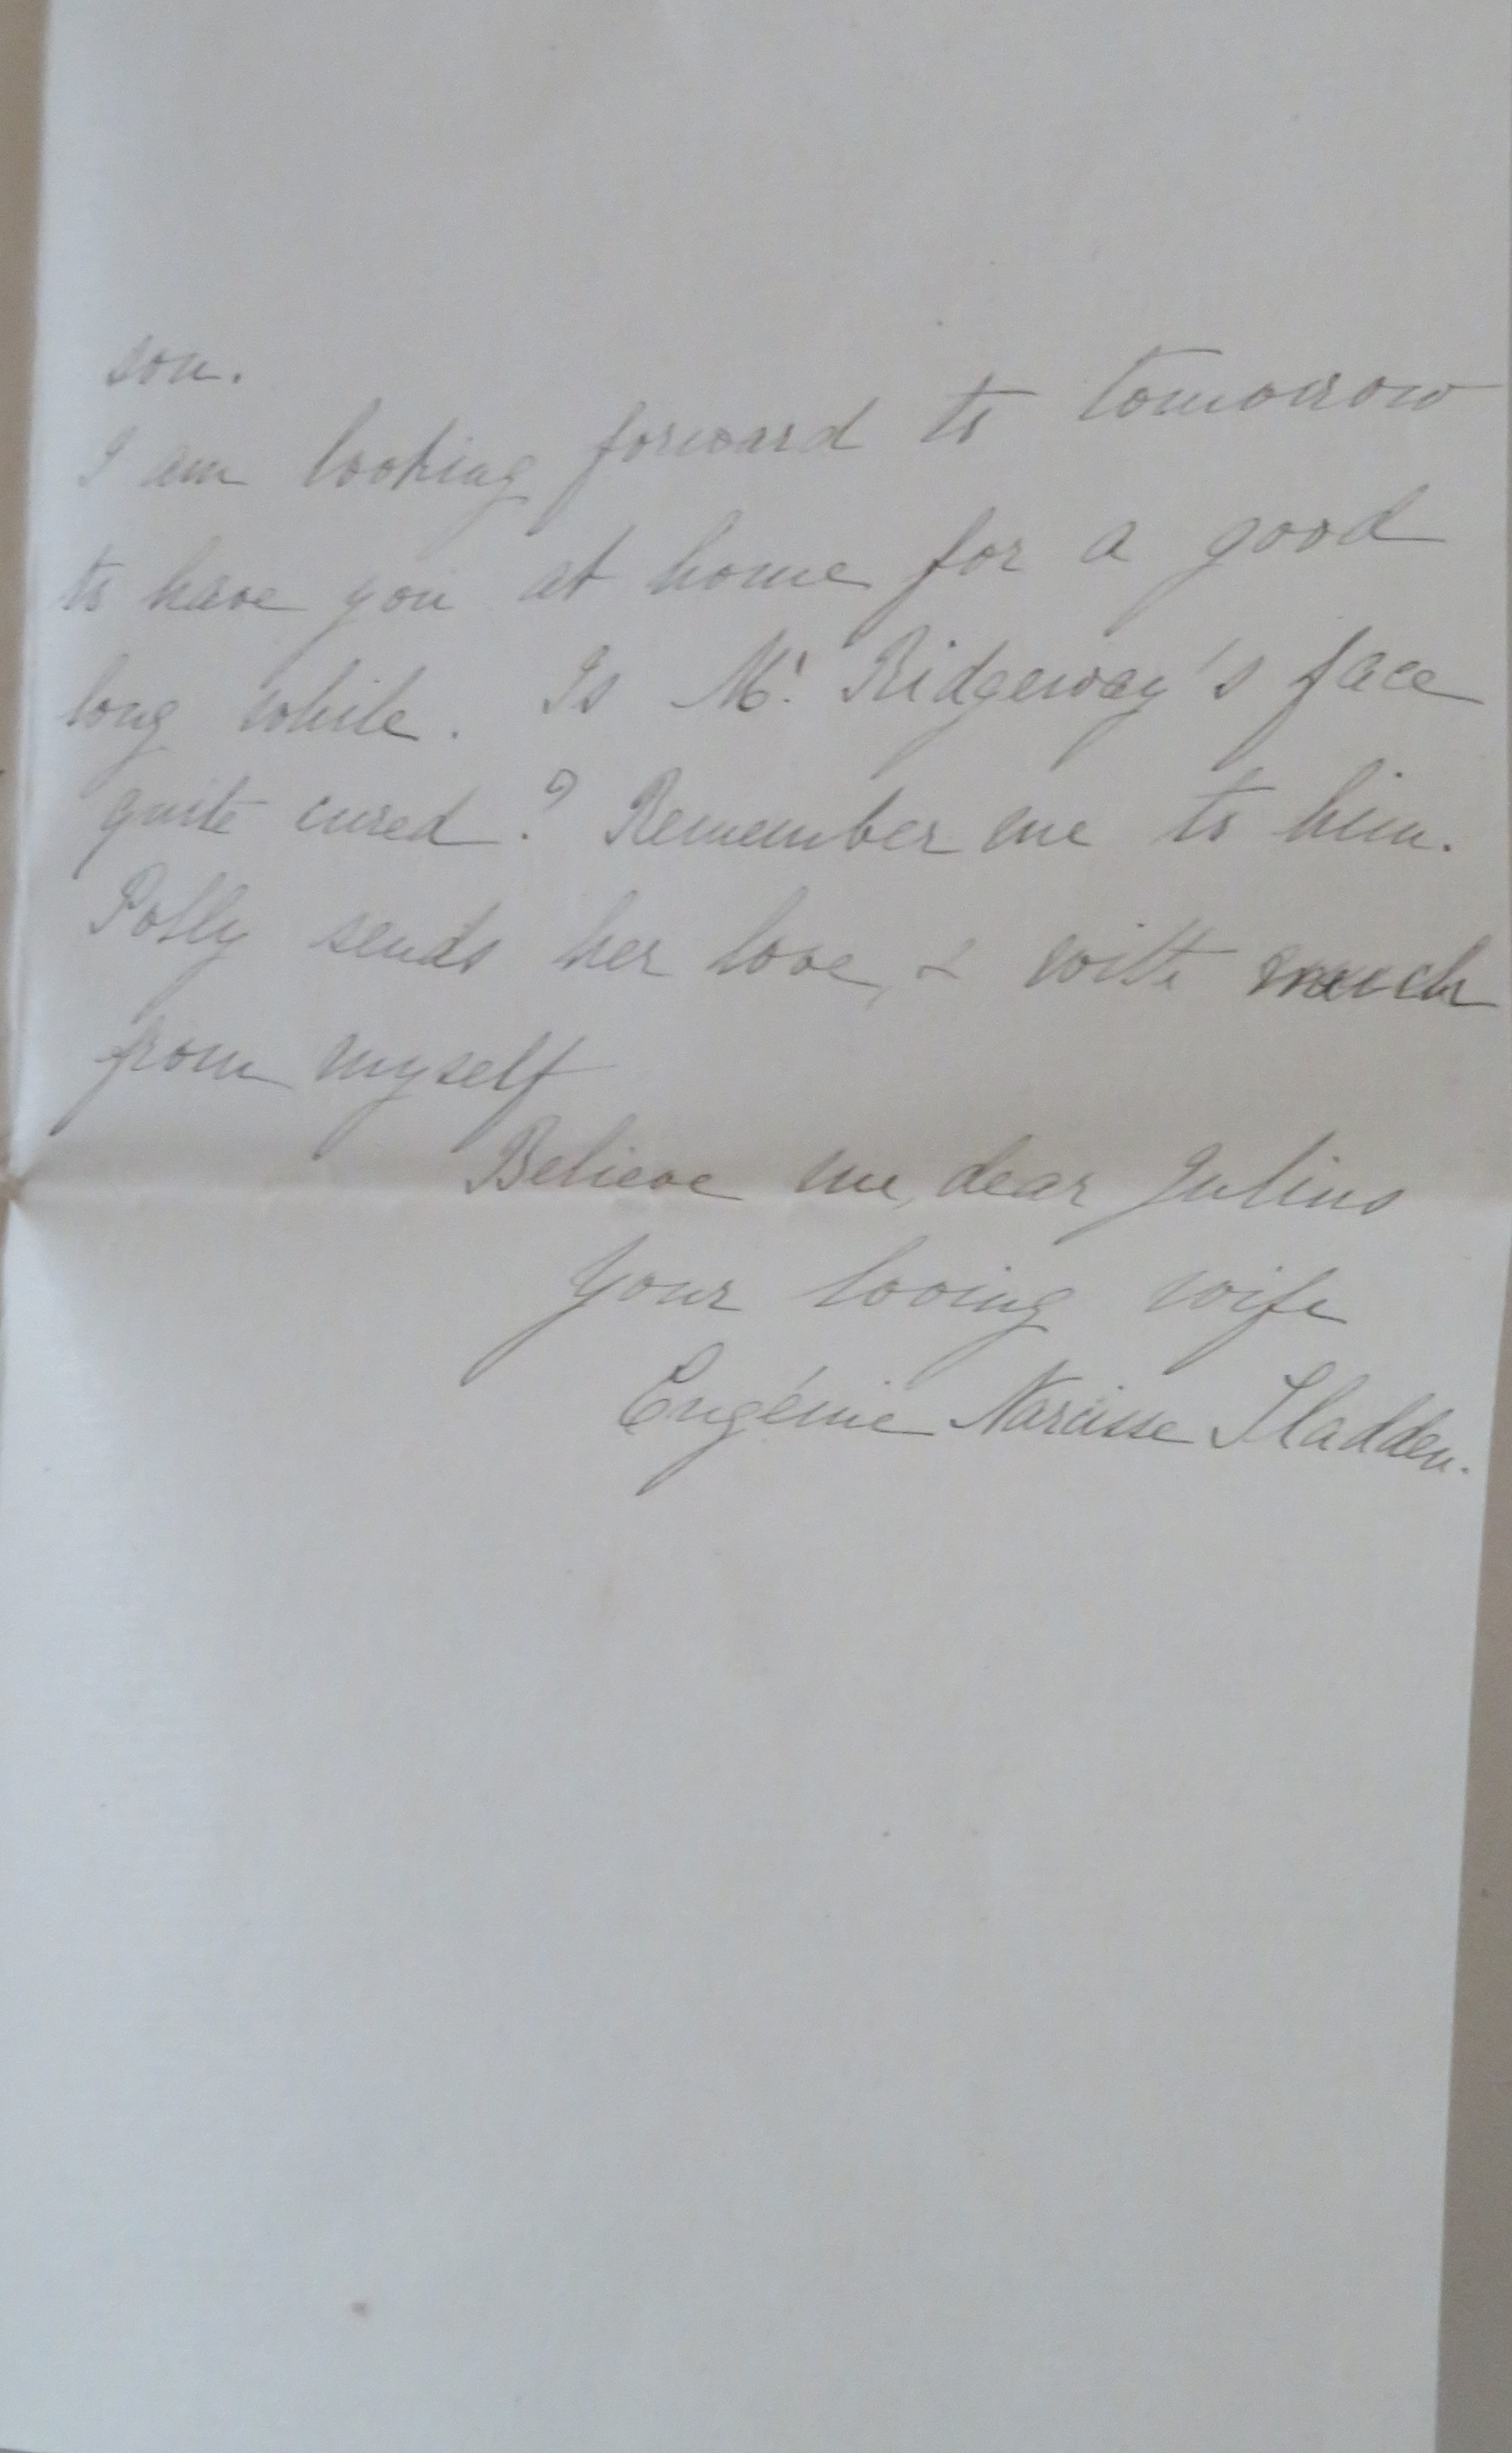 son.
I am looking forward to tomorrow
to have you at home for a good
long while. Is Mr. Ridgeway's face
quite cured? Remember me to him.
Polly sends her love, & with much
from myself
Believe me, dear Julius
Your loving wife
Eugénie Narcisse Sladden.